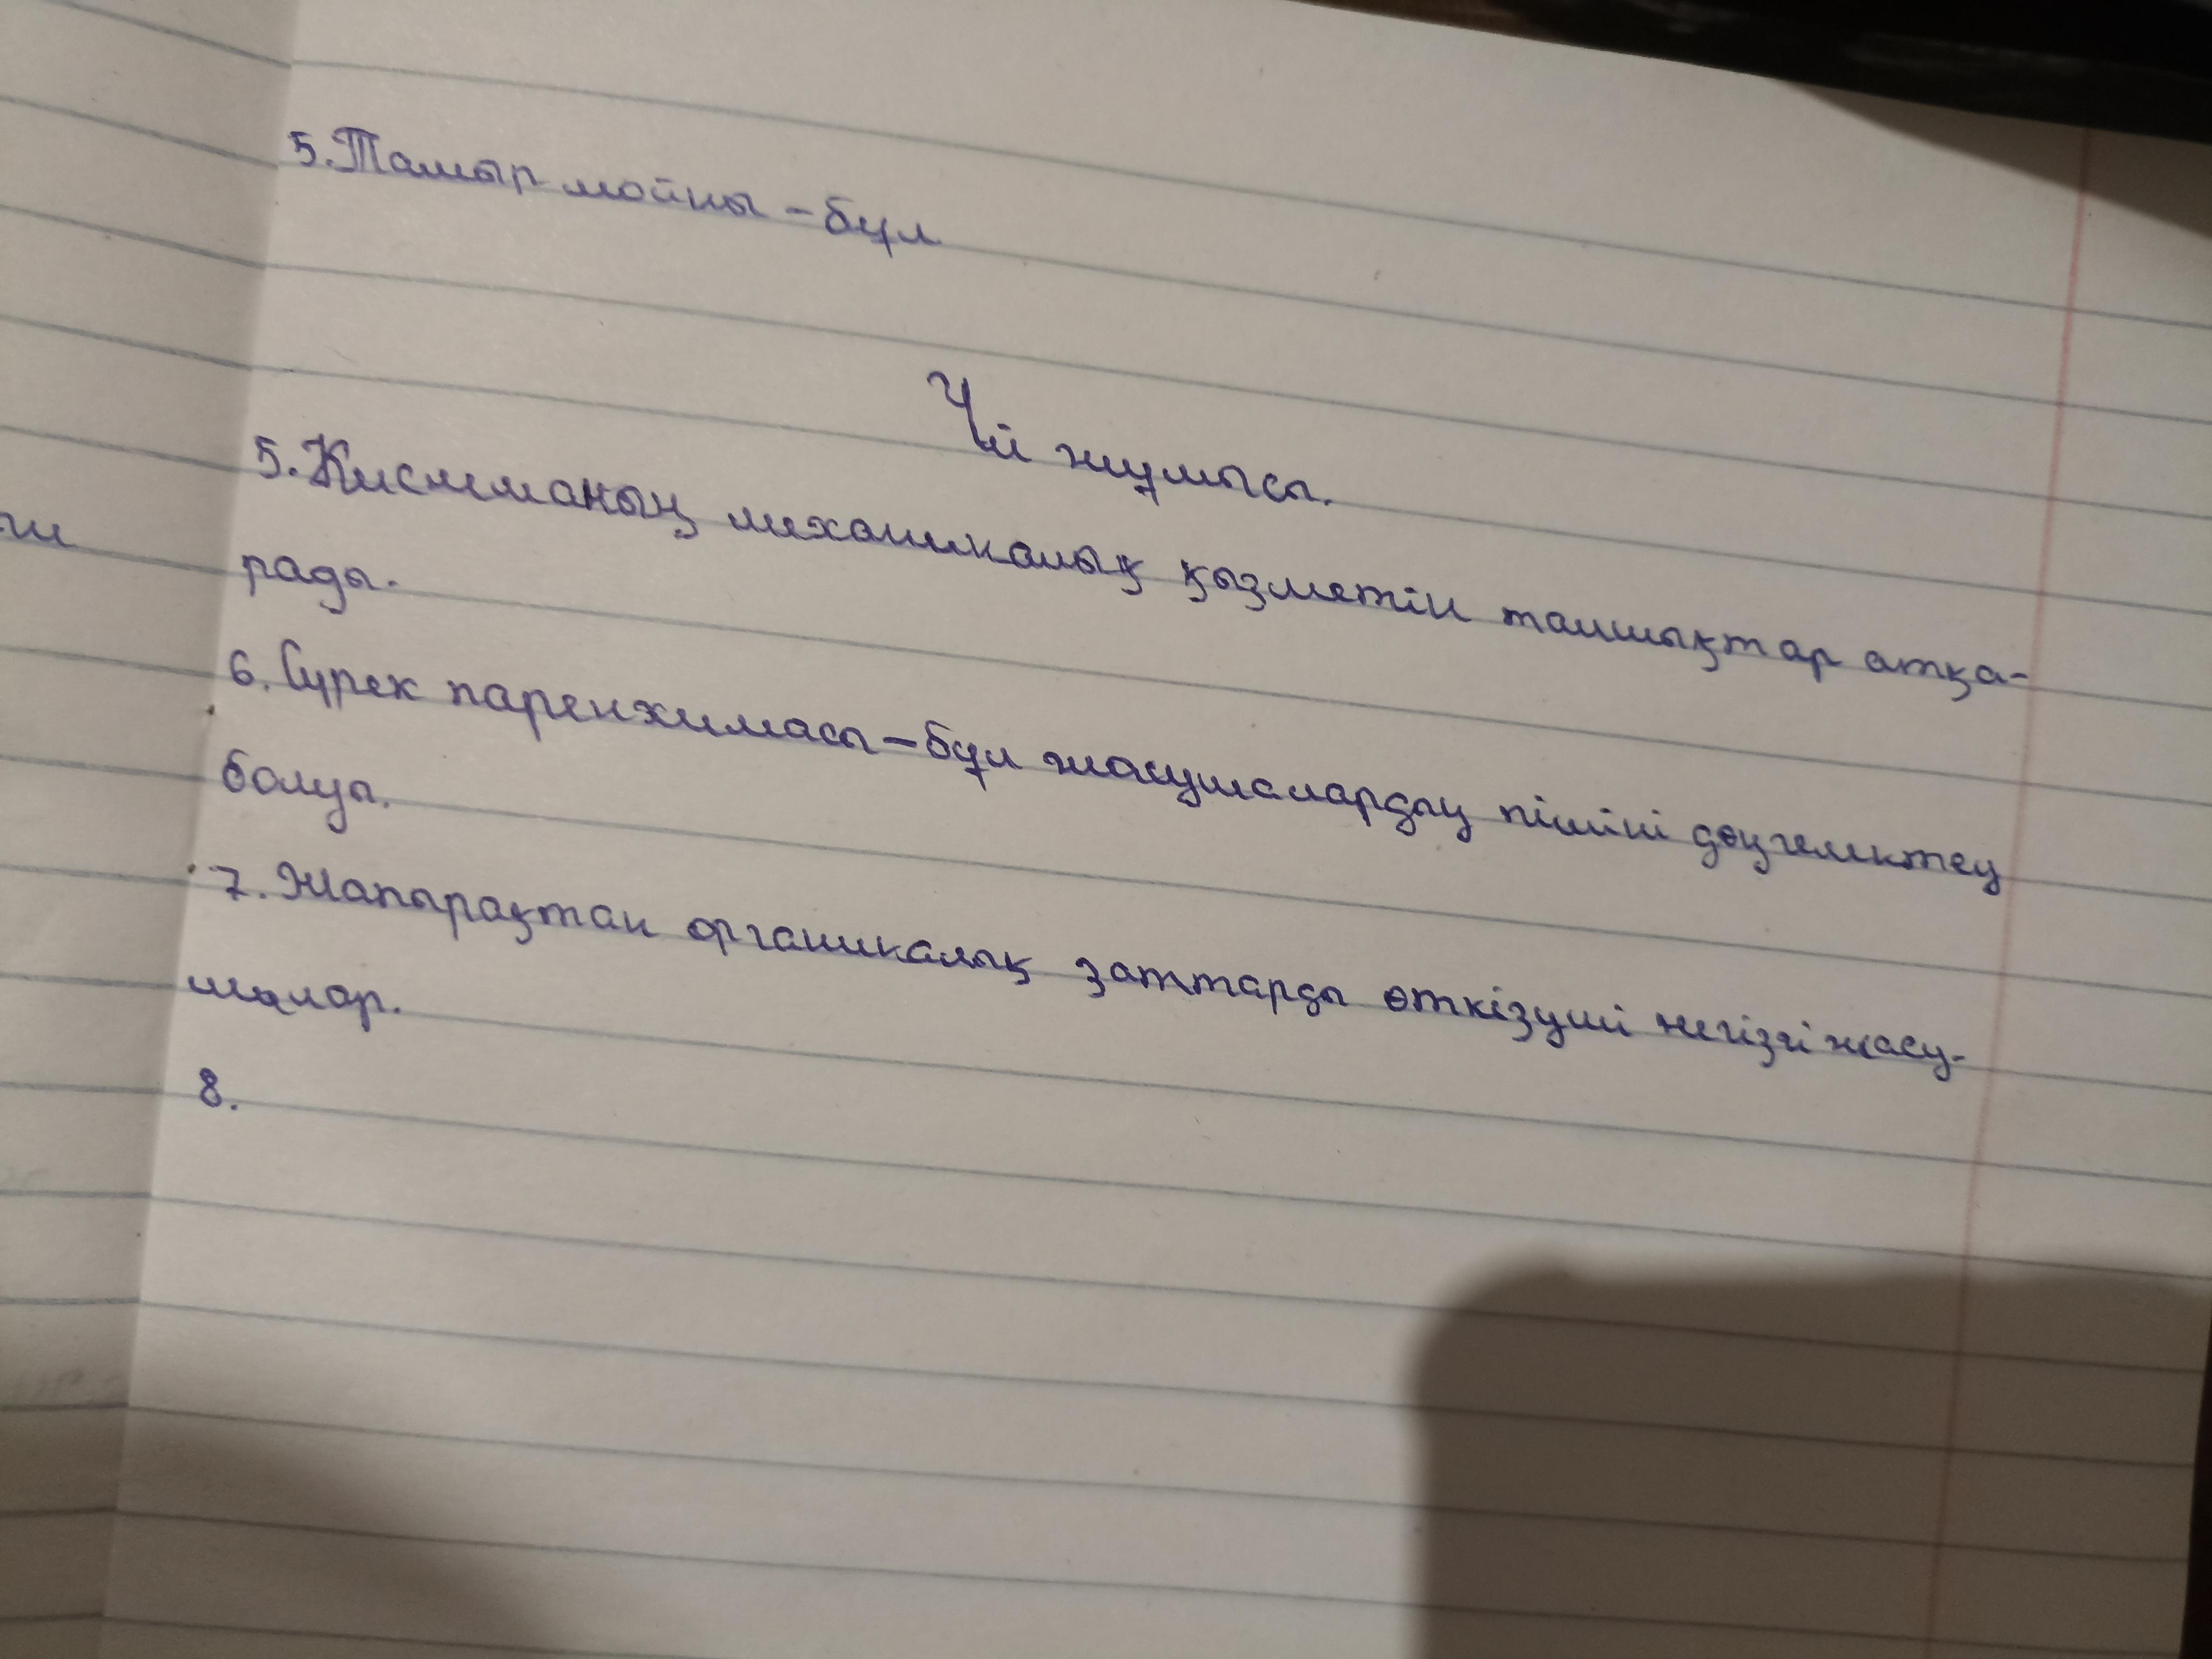 5. Тамыр мойны – бұл
Үй жұмысы.
5. Ксилеманың механикалық қызметін талшықтар атқа-
рады.
6. Сүрек паренхимасы – бұл жасушалардың пішіні дөңгелектеу
болуы.
7. Жапырақтан органикалық заттарды өткізуші негізгі жасу-
шалар.
8.